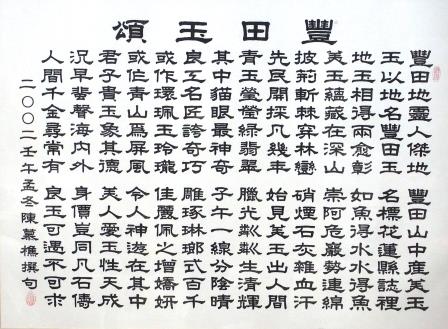 豐田玉頌
豐田地靈人傑地 豐田山中産美玉
玉以地名豐田玉 名標花蓮縣誌裡
地玉相得兩愈彰 如魚得水水得魚
美玉蘊藏在深山 崇阿危巖勢連綿
披荊斬棘穿林巒 硝煙石灰雜血汗
先民開採凡幾年 始見美玉出人間
青玉瑩瑩綠翡翠 臘光粼粼生清輝
其中貓眼最神奇 子午一線分陰晴
良工名匠誇奇巧 雕琢琳瑯式百千
或作環珮玉玲瓏 佳麗佩之增嬌妍
或作青山爲屏風 令人神遊在其中
君子貴玉象其德 美人愛玉性天成
況早蜚聲海內外 身價豈同凡石儔
人間千金尋常有 良玉可遇不可求
二〇〇二壬午孟冬陳慕樵撰句